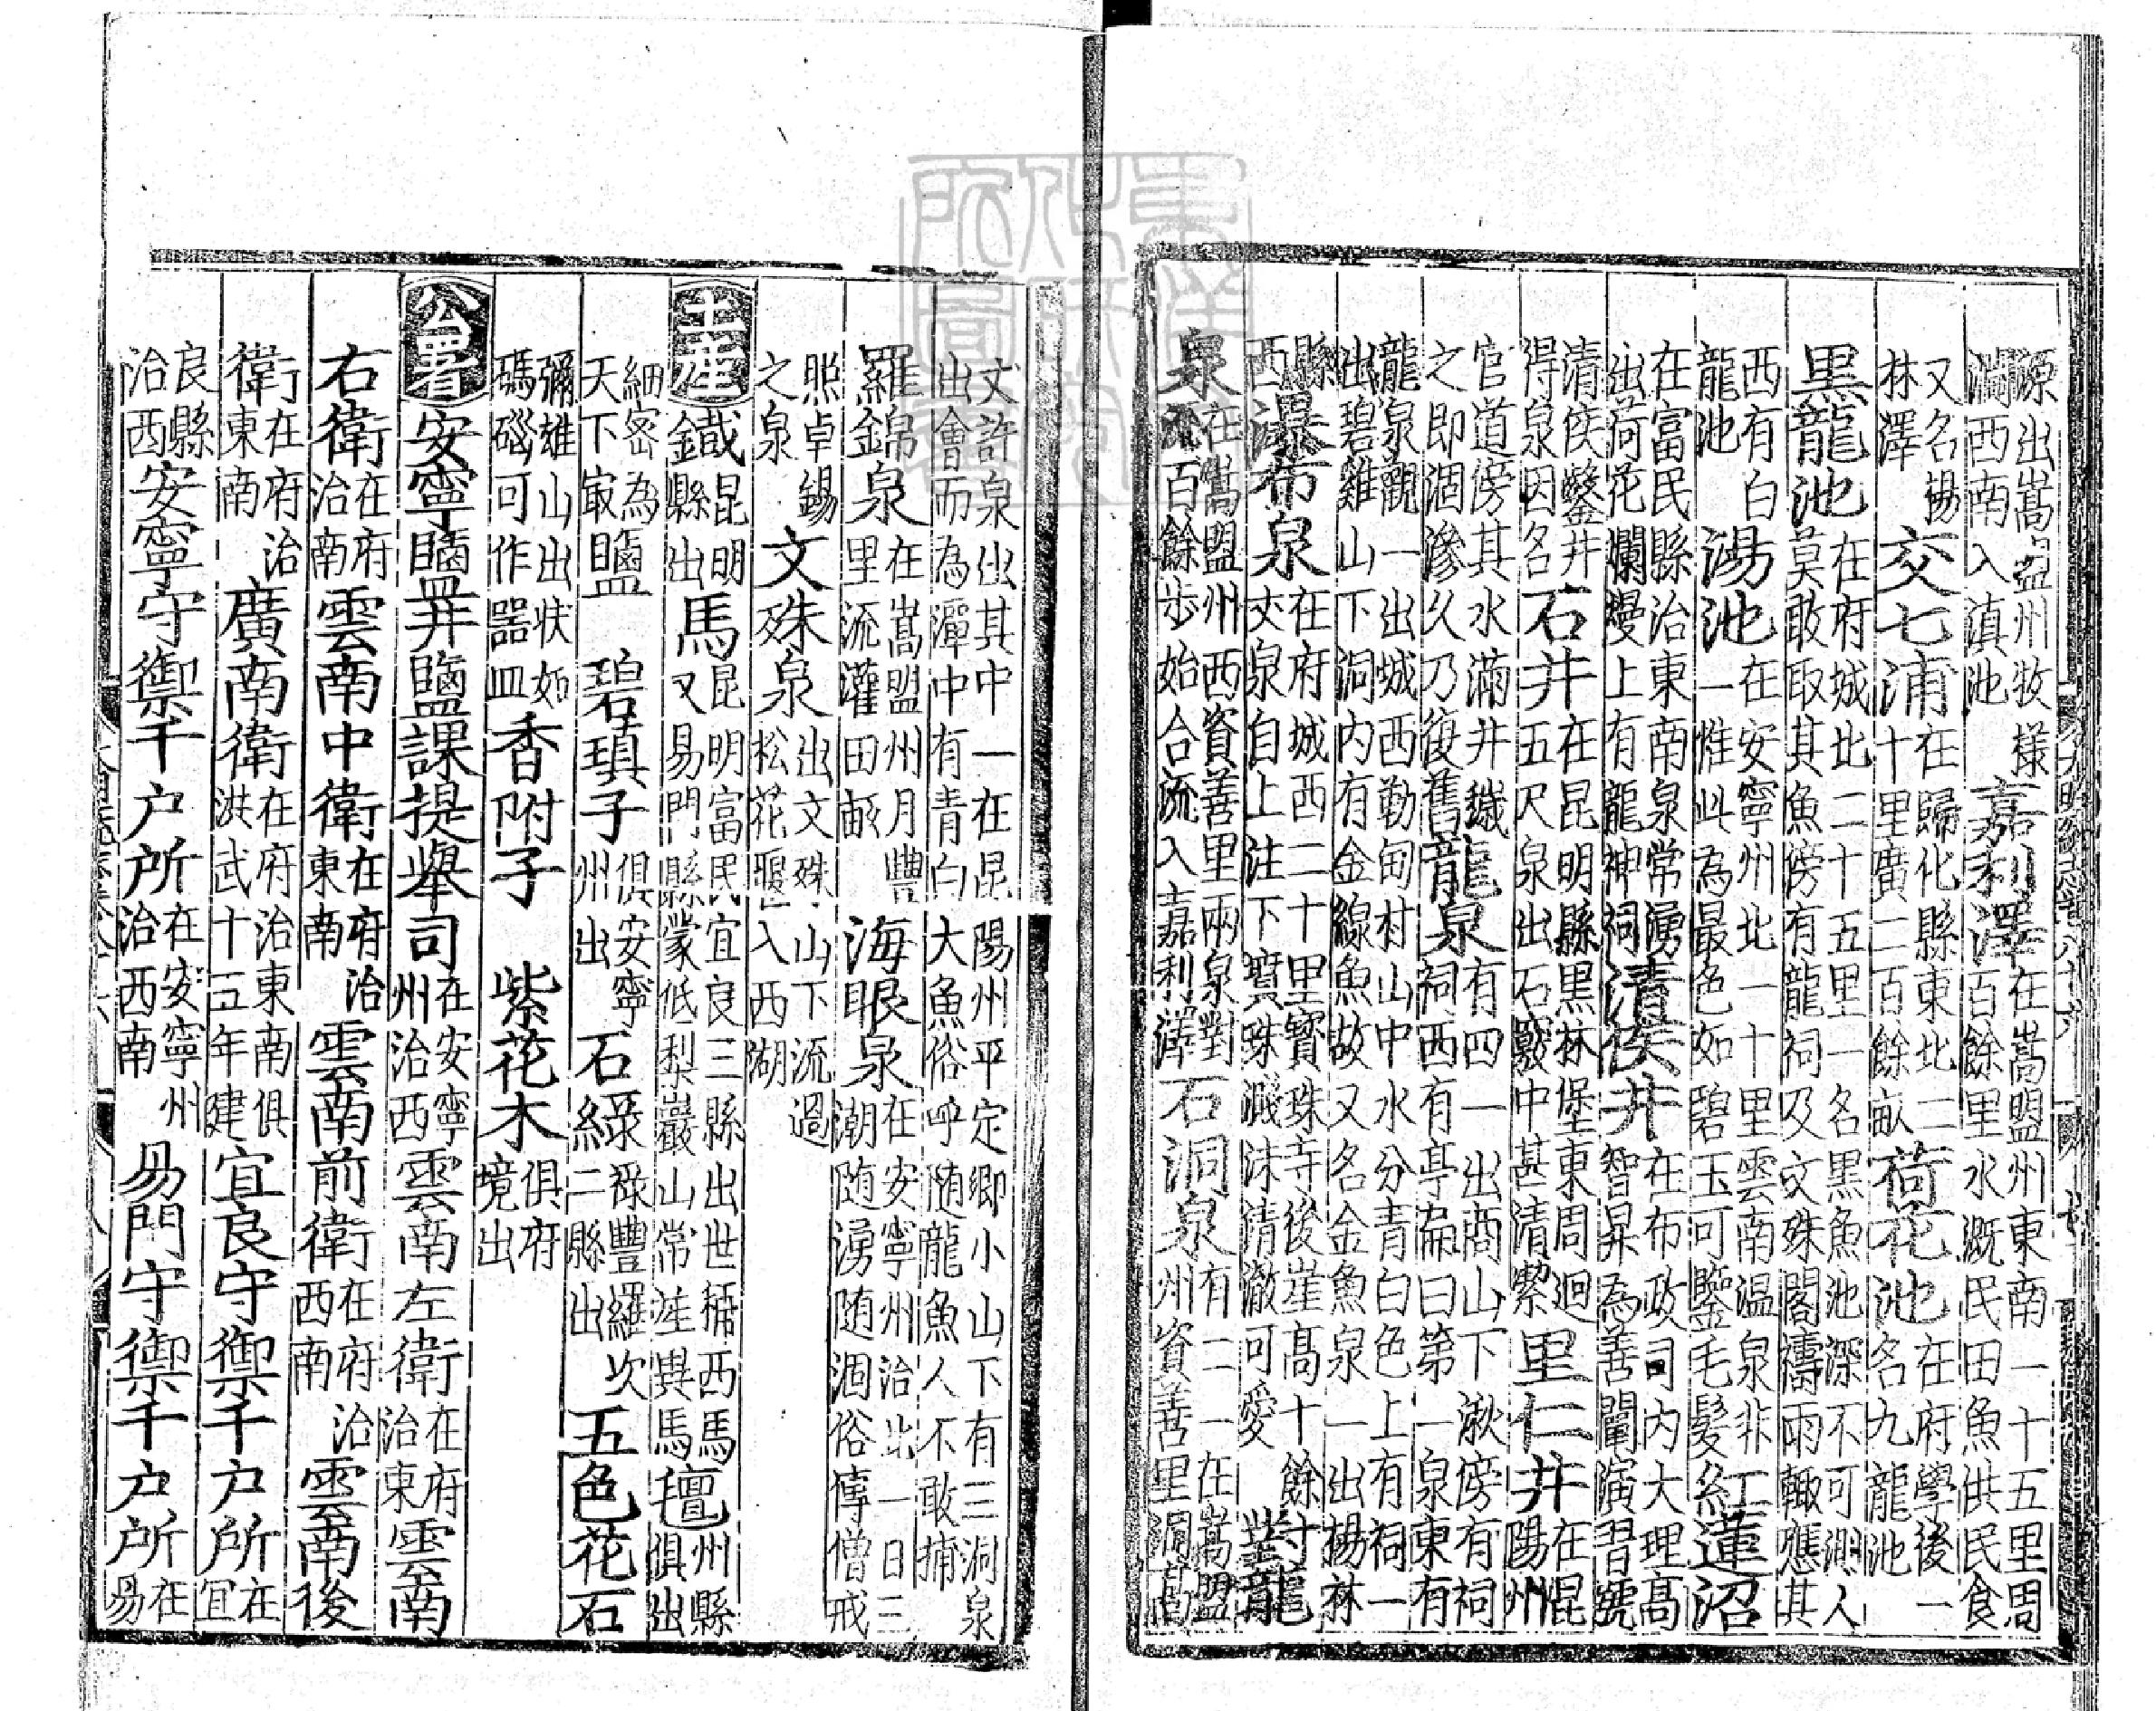 源出嵩盟州牧樣澗西南入滇池嘉利澤在嵩盟州東南一十五里周百餘里水溉民田魚供民食
又名楊林澤交七浦在歸化縣東北二十里廣二百餘畝荷花池在府學後一名九龍池
黑龍池在府城北二十五里一名黑魚池深不可測人莫敢取其魚傍有龍祠及文殊閣禱雨輒應其
西有白龍池湯池在安寧州北一十里雲南温泉非一惟此為最色如碧玉可鑒毛髮紅蓮沼
在富民縣治東南泉常湧出荷花爛熳上有龍神祠清侯井在布政司内大理高智昇為善闡演習號
清侯鑿井得泉因名石井在昆明縣黑林堡東周迴五尺泉出石竅中甚清潔里仁井在昆陽州
官道傍其水滿井纔之即涸滲久乃復舊龍泉有四一出商山下湫傍有祠祠西有亭扁曰第一泉東有
龍泉觀一出城西勒甸村山中水分青白色上有祠一出碧雞山下洞内有金線魚故又名金魚泉一出楊林
縣西瀑布泉在府城西二十里寶珠寺後崖高十餘丈泉自上注下寶珠濺沫清澈可愛對龍
泉在嵩盟州西資善里兩泉對流百餘步始合流入嘉利澤石洞泉有二一在嵩盟州資善里洞高
丈許泉出其中一在昆陽州平定鄉小山下有三洞泉出會而為潭中有青白大魚俗呼随龍魚人不敢捕
羅錦泉在嵩盟州月豐里流灌田畝海眼泉在安寧州治北一日三潮随湧随涸俗傳僧戒
照卓錫之泉文殊泉出文殊山下流過松花壩入西湖
土産鐵昆明縣出馬昆明富民宜良三縣出世稱西馬又易門縣蒙低梨巖山常産異馬氊州縣俱出
細密為天下㝡鹽碧瑱子俱安寧州出石緑祿豐羅次二縣出五色花石
彌雄山出状如碼磘可作器皿香附子紫花木俱府境出
公署安寧鹽井鹽課提舉司在安寧州治西雲南左衛在府治東雲南
右衛在府治南雲南中衛在府治東南雲南前衛在府治西南雲南後
衛在府治東南廣南衛在府治東南俱洪武十五年建宜良守禦千户所在宜
良縣治西安寧守禦千户所在安寧州治西南易門守禦千户所在易